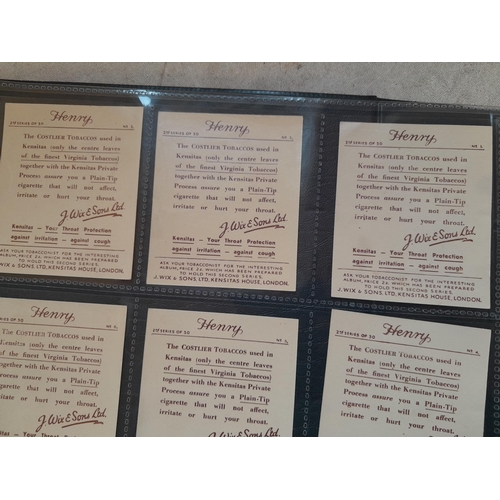 Henry
2nd SERIES OF 50
The COSTLIER TOBACCOS used in
Kensitas (only the centre leaves
of the finest Virginia Tobaccos)
together with the Kensitas Private
Process assure you a Plain-Tip
cigarette that will not affect,
irritate or hurt your throat.
J. Wix & Sons Ltd.
Kensitas – Your Throat Protection
against irritation – against cough
ASK YOUR TOBACCONIST FOR THE INTERESTING
ALBUM, PRICE 2d. WHICH HAS BEEN PREPARED
TO HOLD THIS SECOND SERIES.
J. WIX & SONS LTD, KENSITAS HOUSE, LONDON.
Henry
2nd SERIES OF 50
The COSTLIER TOBACCOS used in
Kensitas (only the centre leaves
of the finest Virginia Tobaccos)
together with the Kensitas Private
Process assure you a Plain-Tip
cigarette that will not affect,
irritate or hurt your throat.
J. Wix & Sons Ltd.
Kensitas – Your Throat Protection
against irritation – against cough
ASK YOUR TOBACCONIST FOR THE INTERESTING
ALBUM, PRICE 2d. WHICH HAS BEEN PREPARED
TO HOLD THIS SECOND SERIES.
J. WIX & SONS LTD, KENSITAS HOUSE, LONDON.
Henry
2nd SERIES OF 50
The COSTLIER TOBACCOS used in
Kensitas (only the centre leaves
of the finest Virginia Tobaccos)
together with the Kensitas Private
Process assure you a Plain-Tip
cigarette that will not affect,
irritate or hurt your throat.
J. Wix & Sons Ltd.
Kensitas – Your Throat Protection
against irritation – against cough
ASK YOUR TOBACCONIST FOR THE INTERESTING
ALBUM, PRICE 2d. WHICH HAS BEEN PREPARED
TO HOLD THIS SECOND SERIES.
J. WIX & SONS LTD, KENSITAS HOUSE, LONDON.
Henry
SERIES OF 50
The COSTLIER TOBACCOS used in
Kensitas (only the centre leaves
of the finest Virginia Tobaccos)
together with the Kensitas Private
Process assure you a Plain-Tip
cigarette that will not affect,
irritate or hurt your throat.
J. Wix & Sons Ltd.
Kensitas – Your Throat Protection
Henry
2nd SERIES OF 50
The COSTLIER TOBACCOS used in
Kensitas (only the centre leaves
of the finest Virginia Tobaccos)
together with the Kensitas Private
Process assure you a Plain-Tip
cigarette that will not affect,
irritate or hurt your throat.
J. Wix & Sons Ltd.
Henry
2nd SERIES OF 50
The COSTLIER TOBACCOS used in
Kensitas (only the centre leaves
of the finest Virginia Tobaccos)
together with the Kensitas Private
Process assure you a Plain-Tip
cigarette that will not affect,
irritate or hurt your throat.